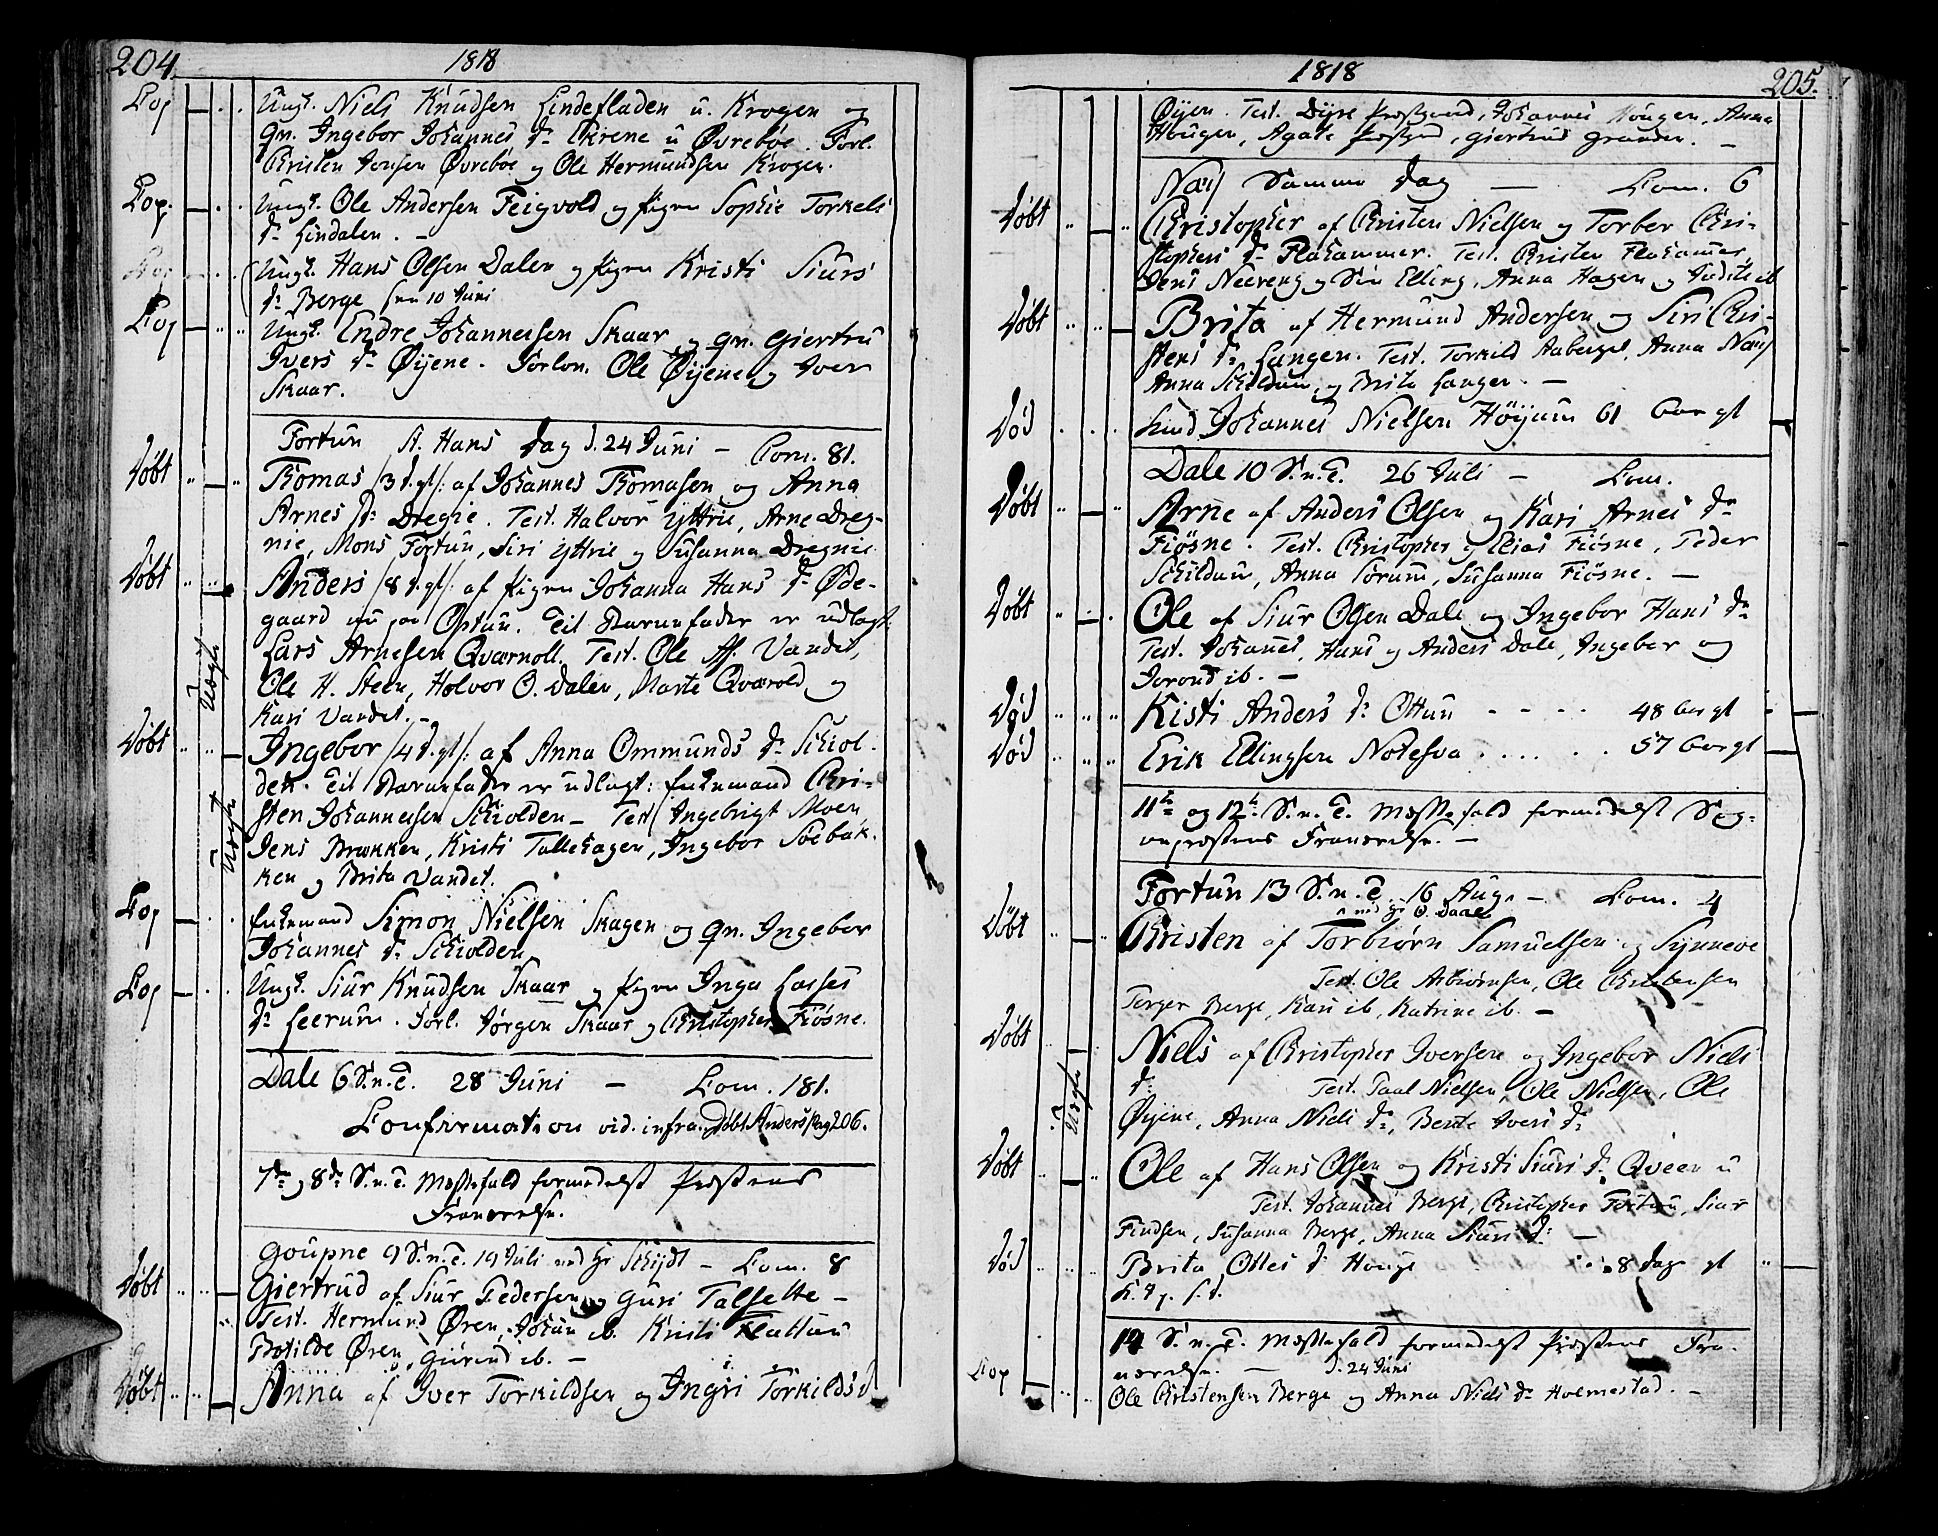 204.
1818
Cop
Ungk. Niels Knudsen Lindefladen u. Krogen og
qv. Ingebor Johannes Dr Ekrene u Øvrebøe. Forl.
Christen Jensen Øvrebøe og Ole Hermundsen Krogen.
Cop.
Ungk. Ole Andersen Feigvold og Pigen Sophie Torkels
Dr Lindalen. –
Cop
Ungk. Hans Olsen Dalen og Pigen Kristi Siurs
Dr Berge 10 Juni
Cop
Ungk. Endre Johannessen Skaar og qv. Giertru
Ivers Dr Øyene. Forlov. Ole Øyene og Iver
Skaar.
Fortun St. Hans Dag d. 24 Juni – Com. 81.
Døbt
Thomas /3 d. gl/: af Johannes Thomasen og Anna
Arnes Dr Dregie. Test. Halvor Yttrie, Arne Dreg-
nie, Mons Fortun, Siri Yttrie og Susanna Dregnie
Døbt
Anders /8 d. gl/: af Pigen Johanna Hans Dr Øde-
gaard nu paa Optun. Til Barnefader er udlagt:
Uægte
Lars Arnesen Qværnoll. Test. Ole Vandet,
Ole H. Steen, Halvor O. Dalen, Marte Qværold og
Kari Vandet. –
Døbt
Ingebor /4 d. gl/: af Anna Ommunds Dr Schiol-
den. Til Barnefader er udlagt: Enkemand Chri-
Uægte
sten Johannessen Schiolden – Test Ingebrigt Moen
Jens Brækken, Kristi Tallehagen, Ingebor Søebak-
ken og Brita Vandet.
Cop
Enkemand Simon Nielsen Skagen og qv. Ingebor
Johannes Dr Schiolden
Cop
Ungk. Siur Knudsen Skaar og Pigen Inga Lasses
Dr Leerum. Forl. Jørgen Skaar og Christopher Fiøsne.
Dale 6 S. n. T. 28 Juni – Com. 181.
Confirmation vid. infra. Døbt Anders pag 206.
7de og 8de S. n. T. Messefald formedelst Præstens
Fraværelse.
Goupne 9 S. n. T. 19 Juli ved Hr Schydt – Com. 8
Døbt
Giertrud af Siur Pedersen og Guri Talsette –
Test. Hermund Øren, Johan ib. Kristi Flattun
Botilde Øren, Giørend ib. –
Døbt
Anna af Iver Torkildsen og Ingri Torkilds D
1818
205.
Øyen. Test. Dyre Præstgaard, Johannes Hougen, Anna
Hougen, Agate Præstgd, Giertrud Granden. –
Næs Samme Dag – Com. 6
Døbt
Christopher af Christen Nielsen og Torber Chri-
stophers Dr Flahammer. Test. Christen Flahamer,
Jens Neereng og Elling, Anna Hagen og Judith ib
Døbt
Brita af Hermund Andersen og Siri Chri-
stens Dr Langen. Test. Torkild Aaberge, Anna Næs
Anna Schildum, og Brita Langer. –
Død
Johannes Nielsen Høyum 61 aar gl
Dale 10 S. n. T. 26 Juli – Com.
Døbt
Arne af Anders Olsen og Kari Arnes Dr
Fiøsne. Test. Christopher og Elias Fiøsne, Peder
Schildum, Anna Sorum, Susanna Fiøsne. –
Døbt
Ole af Siur Olsen Dale og Ingebor Hans Dr
Test. Johannes, Hans og Anders Dale, Ingebor og
Jorond ib. –
Død
Kisti Anders Dr Ottun - - - - 48 aar gl
Død
Erik Ellingsen Notesva . . . . . 57 aar gl
11te og 12te S. n. T. Messefald formedelst Sog-
nepræstens Fraværelse. –
Fortun 13 S. n. T. 16 Aug. – Com. 4
ved Hr O. Daae
Døbt
Christen af Torbiørn Samuelsen og Synneve
Test. Ole Asbiørnsen, Ole Christensen
Torger Berge, Kari ib, Katrine ib. –
Døbt
Niels af Christopher Iversen og Ingebor Niels
Uægte
Dr Test. Paal Nielsen, Ole Nielsen, Ole
Øyene, Anna Niels Dr, Bente Ivers Dr
Døbt
Ole af Hans Olsen og Kristi Siurs Dr Qveen u
Test. Johannes Berge, Christopher Fortun, Siur
Findsen, Susanna Berge, Anna Siurs Dr –
Død
Brita Ottes D Houge . . . 8 Dage gl
14 S. n. T. Messefald formedelst Præstens Fra-
værelse. –
d. 24 Juni
Cop
Ole Christensen Berge og Anna Niels Dr Holmestad. –